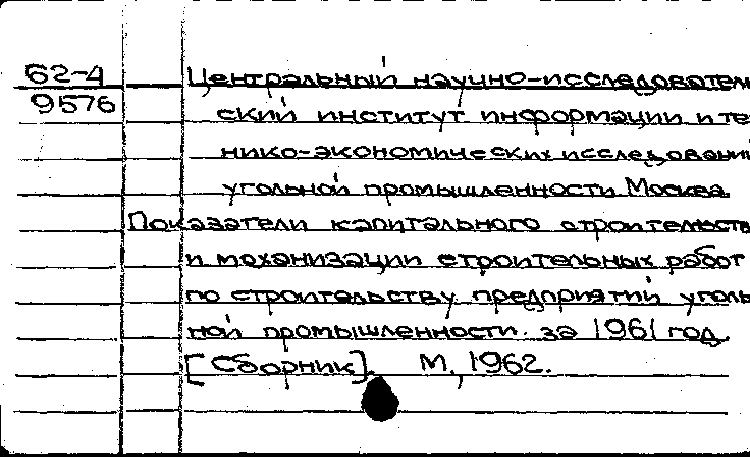 62-4
9576
Центральный научно-исследовател
ский институт информации и те
нико-экономических исследований
угольной промышленности Москва
Показатели капитального строительств
и механизации строительных работ
по строительству предприятий уголь
ной промышленности за 1961 год.
[Сборник]. М., 1962.